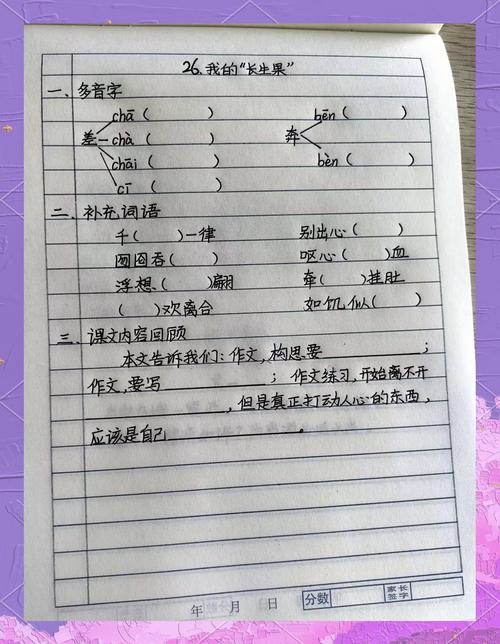 26.我的“长生果”
一、多音字
差 chā( ) chà( ) chāi( ) cī( )
奔 bēn( ) bèn( )
二、补充词语
千( )一律 别出心( )
囫囵吞( ) 呕心( )血
浮想( )翩 牵( )挂肚
( )欢离合 如饥似( )
三、课文内容回顾
本文告诉我们:作文,构思要________;
作文,要写________; 作文练习,开始离不开
________,但是真正打动人心的东西,
应该是自己________。
年 月 日 分数 家长签字